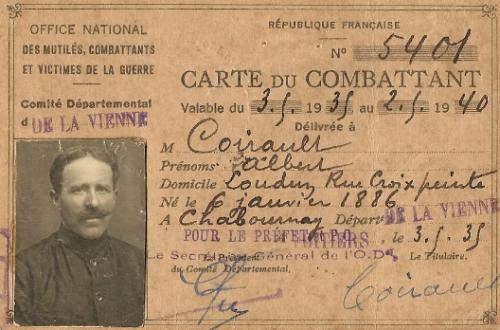 OFFICE NATIONAL
DES MUTILÉS, COMBATTANTS
ET VICTIMES DE LA GUERRE
Comité Départemental
d DE LA VIENNE
RÉPUBLIQUE FRANÇAISE
No 5401
CARTE DU COMBATTANT
Valable du 3.5. 1935 au 2.5. 1940
Délivrée à
M Coirault
Prénoms: Albert
Domicile Loudun Rue Croix peinte
Né le 6 janvier 1886
A Chabournay Départ DE LA VIENNE
POUR LE PRÉFET P.O. POITIERS, le 3.5.35
Le Président
Le Secrétaire Général de l'O.D.
Le Titulaire,
du Comité Départemental,
Coirault